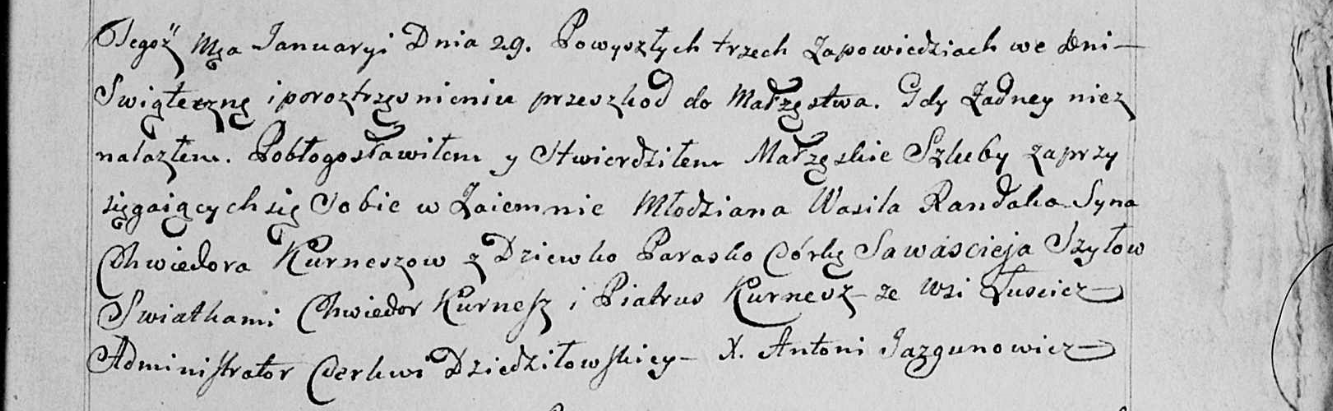 Tegoż Mca Januaryi Dnia 29. Powyszłych trzech Zapowiedziach we Dni
Swiąteczne i poroztrząsnieniu przeszkod do Małzęstwa. Gdy Żadney niez
nalazłem. Pobłogosławiłem y Stwierdziłem Małzęskie Szluby zaprzy
sięgaiących się Sobie w Zaiemnie Młodziana Wasila Randaka Syna
Chwiedora Kurneszow z Dziewko Parasko Córkę Sawaścieja Szyłow
Swiatkami Chwiedor Kurnesz i Piatrus Kurnesz ze Wsi Łuscicz
Administrator Cerkwi Dziedziłowskiey X. Antoni Jazgunowicz